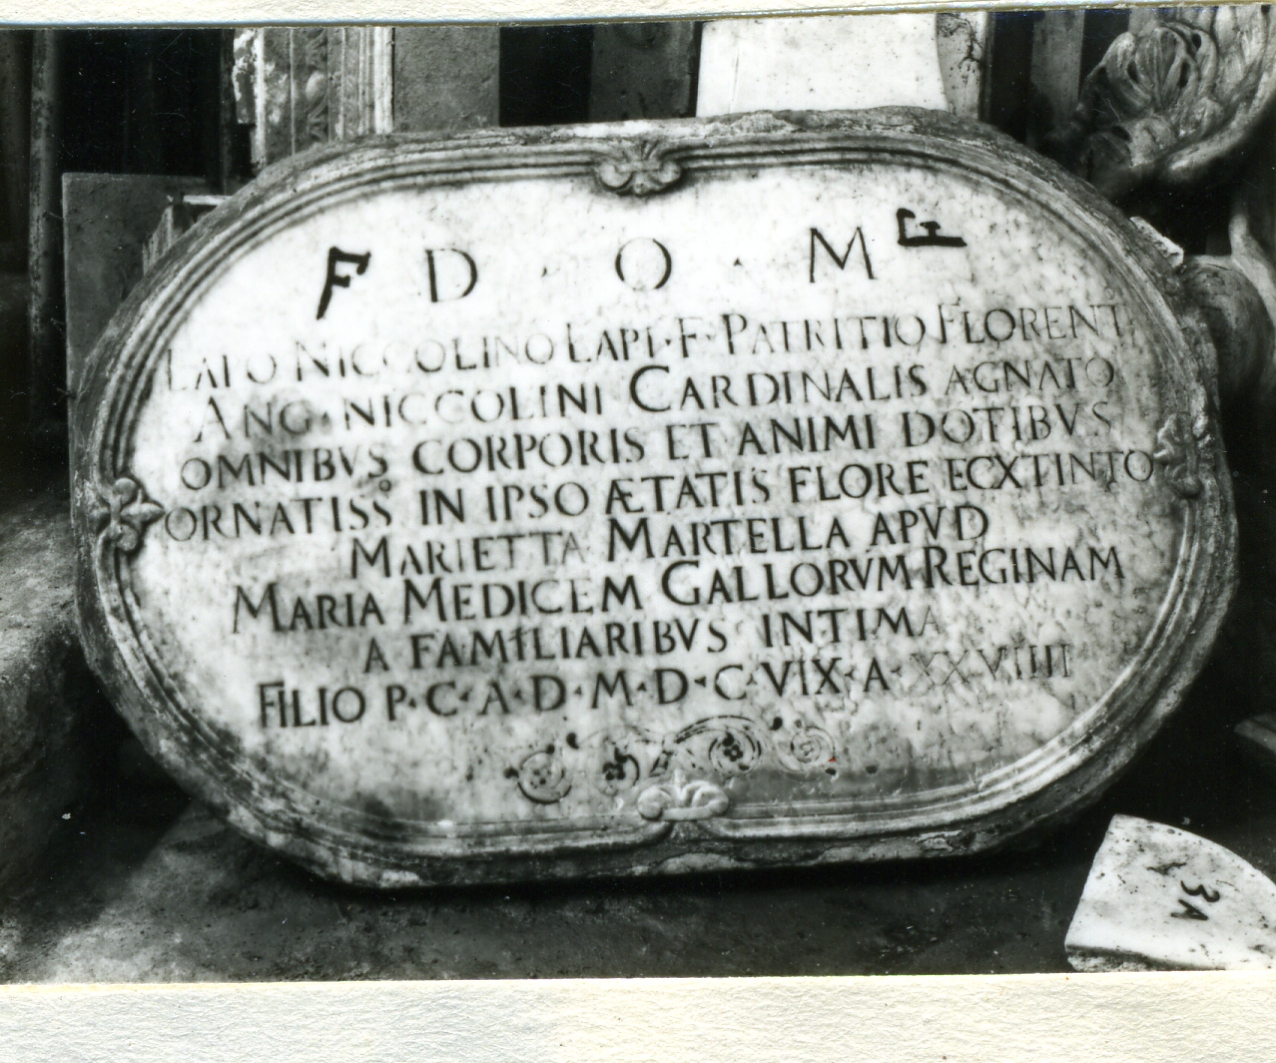 F D · O · M F
LAPO NICCOLINO LAPI·F·PATRITIO FLORENT
ANG·NICCOLINI CARDINALIS AGNATO
OMNIBVS CORPORIS ET ANIMI DOTIBVS
ORNATISS IN IPSO ÆTATIS FLORE ECXTINTO
MARIETTA MARTELLA APVD
MARIA MEDICEM GALLORVM REGINAM
A FAMILIARIBVS INTIMA
FILIO P·C·A·D·M·D·C·VIX·A·XXVIIII
3A